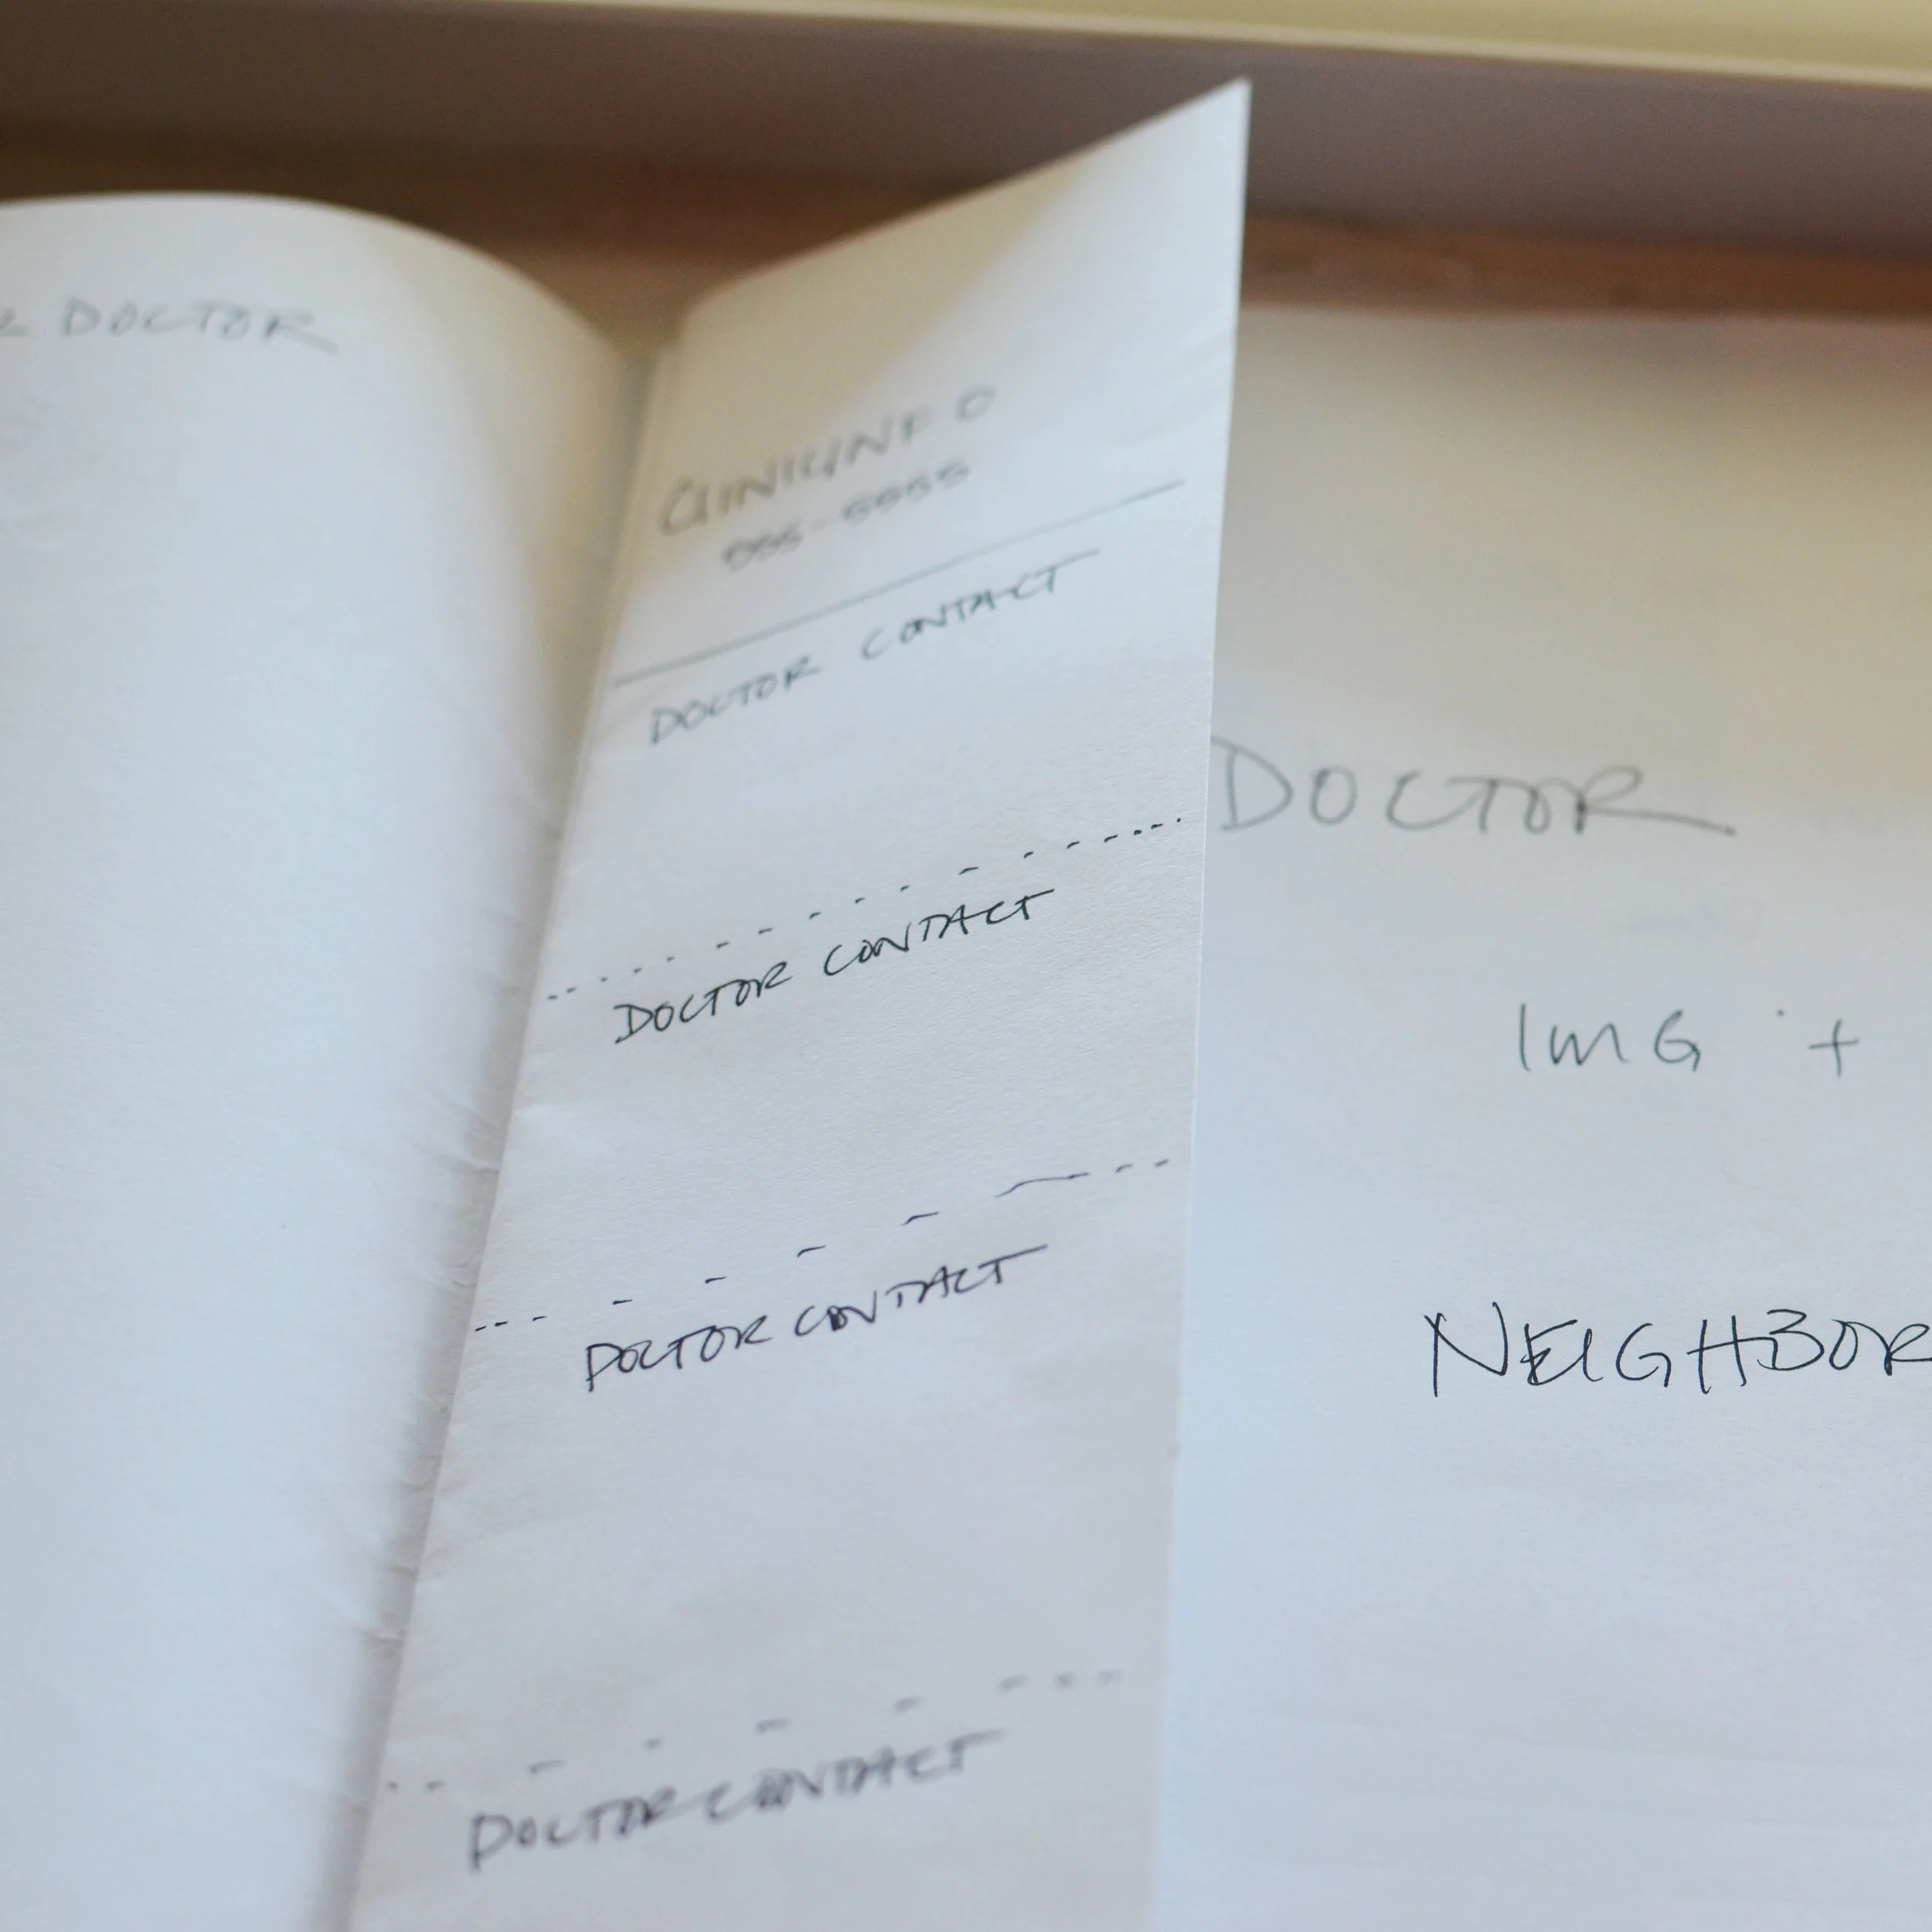 DOCTOR
CLINIC INFO
555-5555
DOCTOR CONTACT
DOCTOR CONTACT
DOCTOR CONTACT
DOCTOR CONTACT
DOCTOR
IMG +
NEIGHBOR